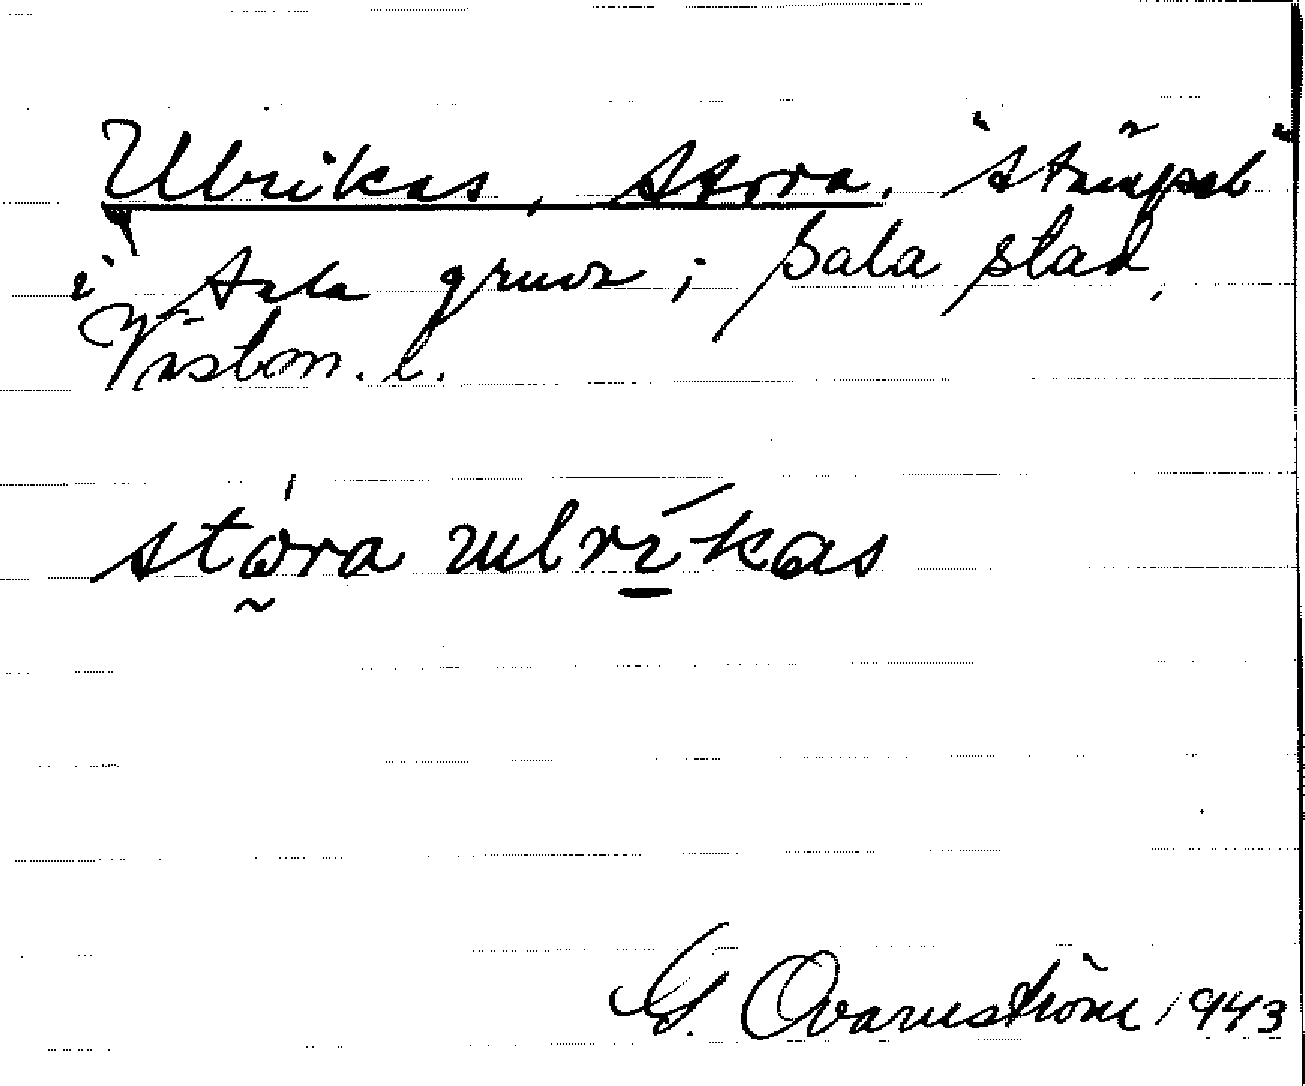 Ulrikas, stora, "stämpel"
i Sala gruva; Sala stad,
Västm. l.
stɷ́ra ulríkas
G. Qvarnström 1943